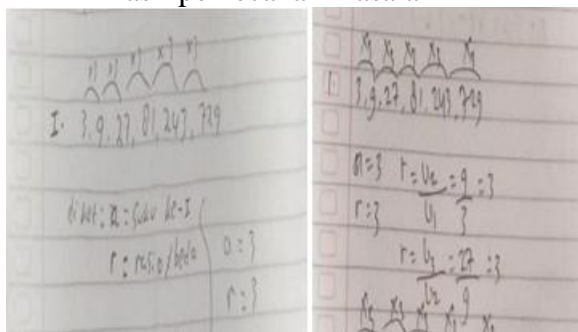 x3 x3 x3 x3 x3
I. 3, 9, 27, 81, 243, 729
diket: a = suku ke-I
r = rasio/beda
a = 3
r = 3
x3 x3 x3 x3 x3
1. 3, 9, 27, 81, 243, 729
a = 3 r = U2/U1 = 9/3 = 3
r = 3
r = U3/U2 = 27/9 = 3
x3 x3 x3 x3